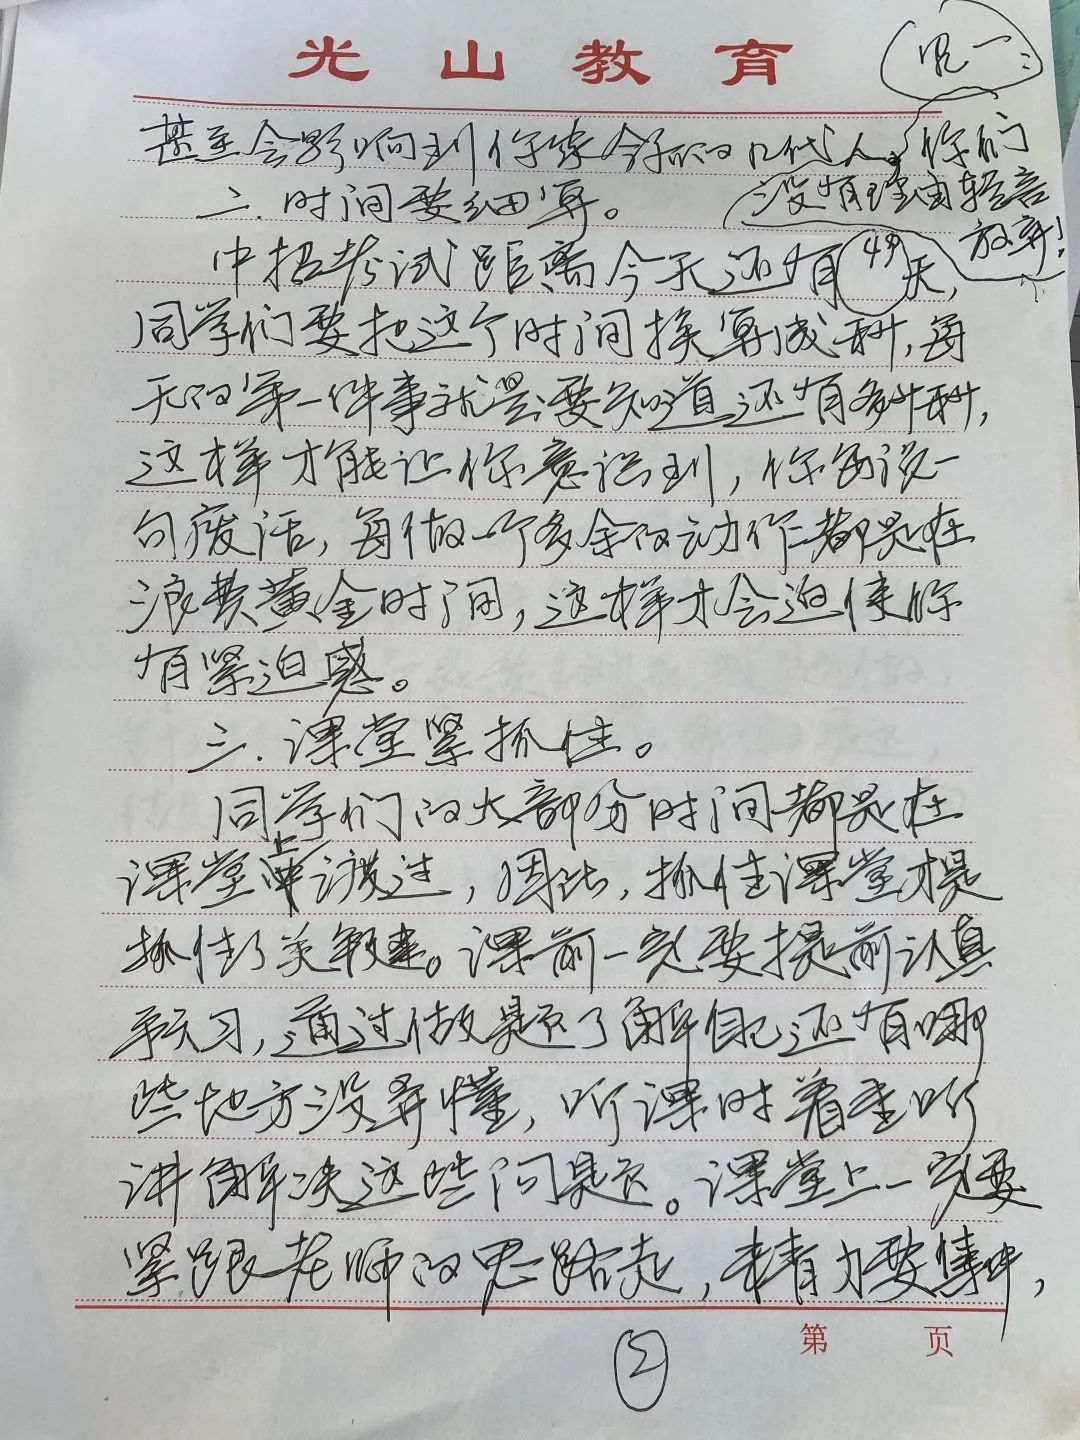 光山教育
甚至会影响到你家今后的几代人。你们
没有理由轻言
放弃!
二.时间要细算。
中招考试距离今天还有49天,
同学们要把这个时间换算成秒,每
天的第一件事就是要知道还有多少秒,
这样才能让你意识到,你每说一
句废话,每做一个多余的动作都是在
浪费黄金时间,这样才会迫使你
有紧迫感。
三.课堂紧抓住。
同学们的大部份时间都是在
课堂上渡过,因此,抓住课堂才是
抓住了关键。课前一定要提前认真
预习,通过做题了解自己还有哪
些地方没弄懂,听课时着重听
讲解决这些问题。课堂上一定要
紧跟老师的思路走,精力要集中,
第 页
②